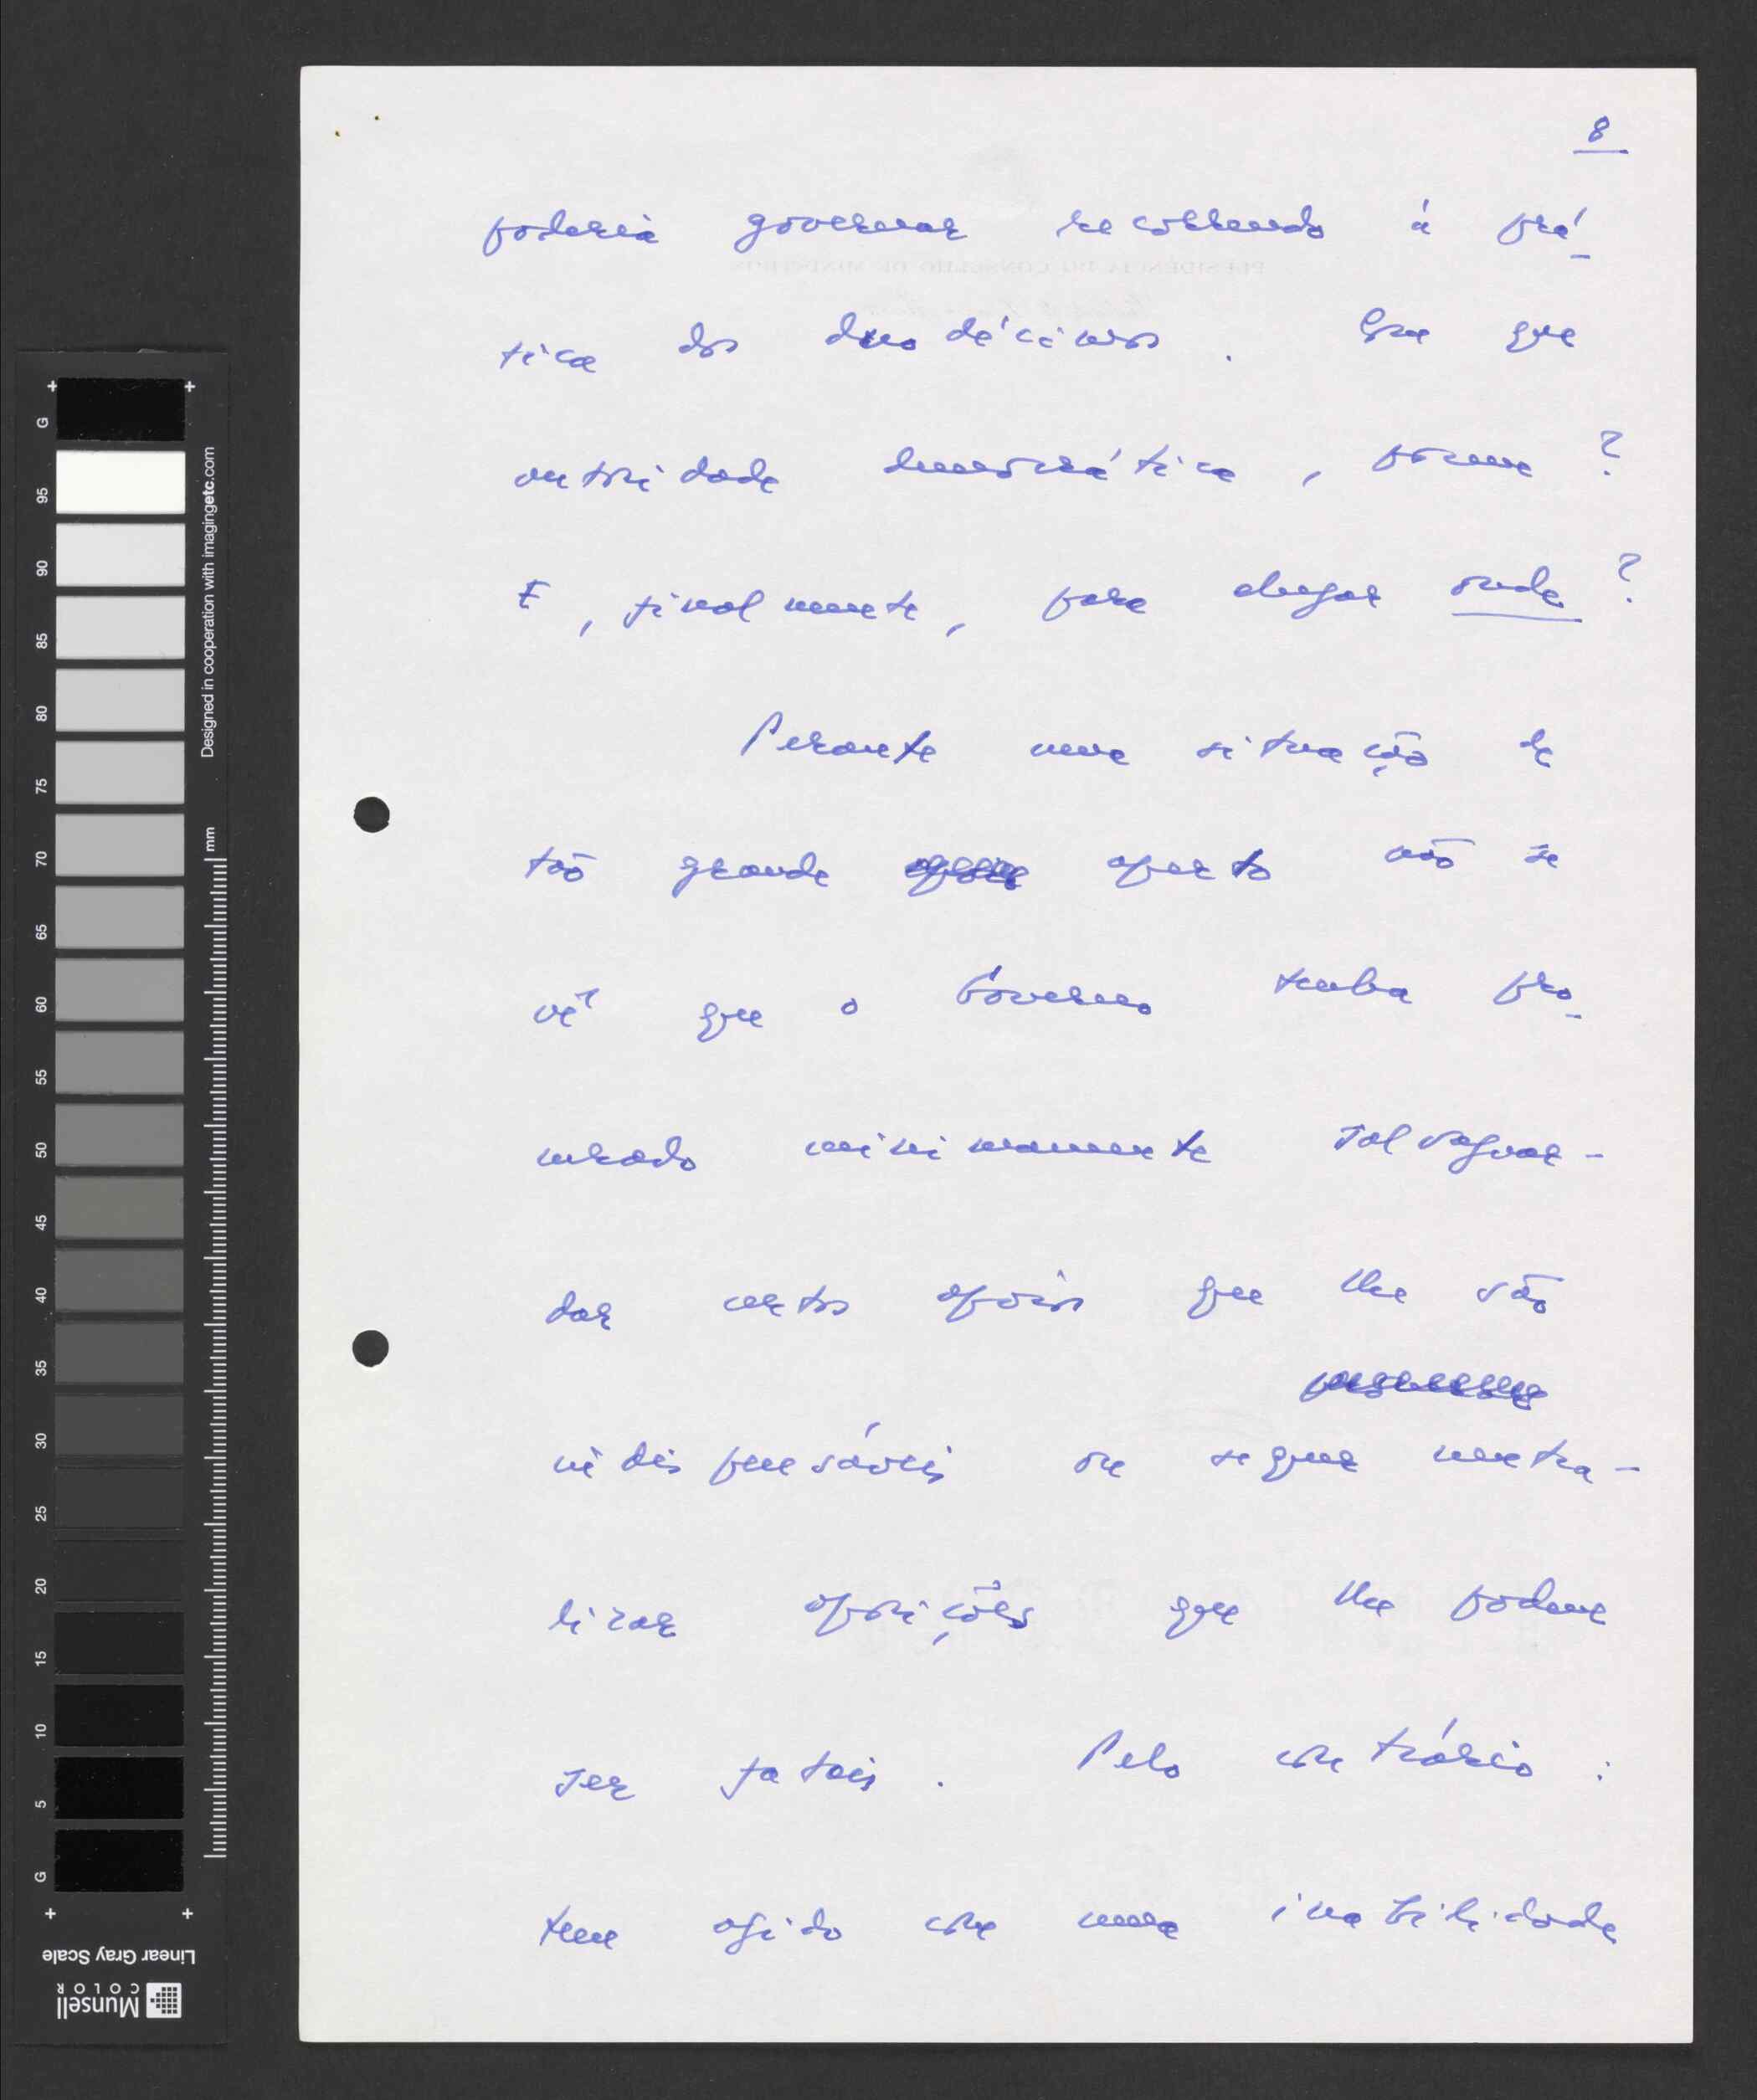 8
poderia governar recorrendo à prá-
tica dos duodécimos. Com que
autoridade democrática, porém?
E, finalmente, para chegar onde?
Perante uma situação de
tão grande aperto não se
vê que o Governo tenha pro-
curado minimamente salvaguar-
dar certos apoios que lhe são
indispensáveis ou sequer neutra-
lizar oposições que lhe podem
ser fatais. Pelo contrário:
tem agido com uma inabilidade
G 95 90 85 80 75 70 65 60 55 50 45 40 35 30 25 20 15 10 5 G
Designed in cooperation with imagingetc.com
mm
Linear Gray Scale
Munsell
COLOR